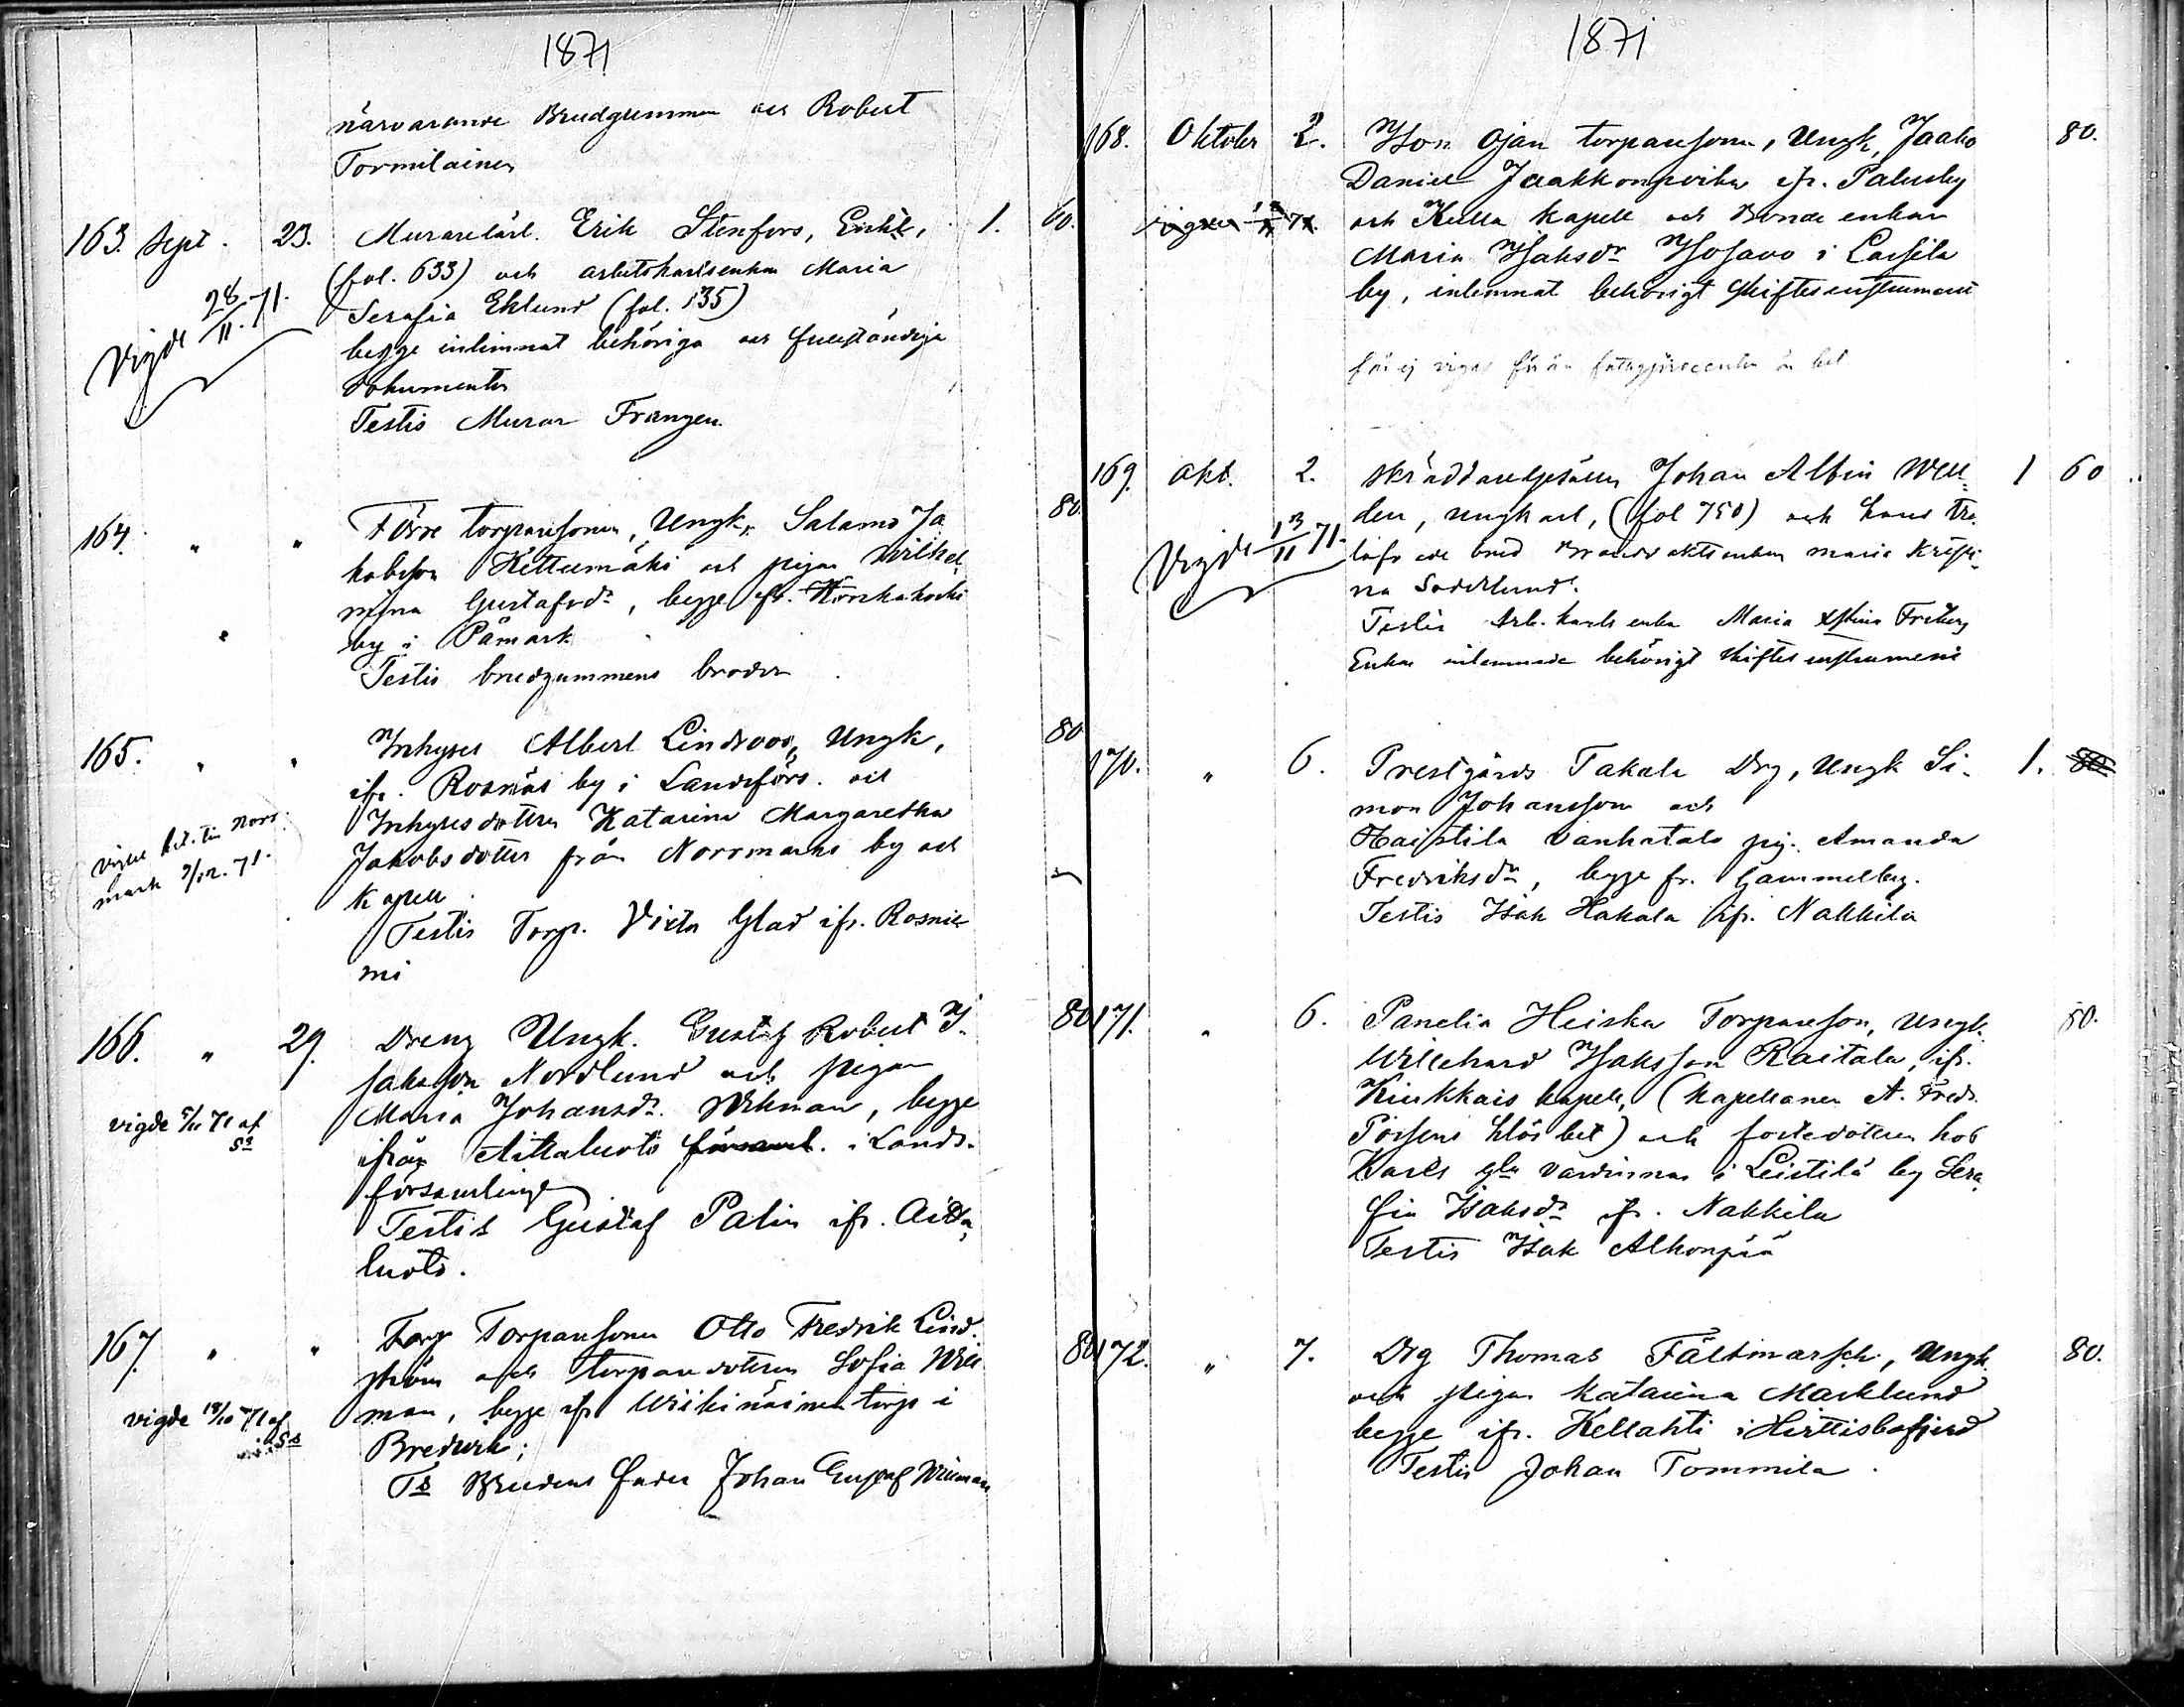 1871
närvarande Brudgummen och Robert
Tormilainen
163. Sept. 23. Murarelärl. Erik Stenfors, Enkl., 1. 60.
(fol. 633) och arbetskarlsenkan Maria
Serafia Eklund (fol. 135)
Vigde 28/11. 71.
begge inlemnat behöriga och fullständiga
dokumenter
Testis Murar Frangen
164. " " Förre torparesonen, Ungk, Salomo Ja 80
kobsson Kettumäki och pigan Wilhel
mina Gustafsdr, begge ifr.
by i Påmark
Testis brudgummens broder
165. " " Inhyses Albert Lindroos, Ungk, 80
ifr. Rosnäs by i Landsförs. och
Inhysesdottren Katarina Margaretha
Jakobsdotter från Norrmarks by och
Kapell
mark 9/12. 71.
Testis Torp. Victor Glad ifr. Rosnie
mi
166. " 29. Dreng Ungk. Gustaf Robert I 80
saksson Nordlund och pigan
Maria Johansdr. Wikman, begge
ifrån Aittaluoto församl. i Lands-
församlinge
vigde 5/11 71 af
Ss
Testis Gustaf Palin ifr. Aitta
luoto.
167. " " Torp Torparesonen Otto Fredrik Lind- 80
ström och torparedottren Sofia Will
man, begge ifr Wiikinäinen torp i
Bredvik;
vigde 18/10 71 af
Ss
Ts Brudens fader Johan Gustaf Willman
1871
168. Oktober 2. Ison Ojan torparesonen, Ungk, Jaako 80.
Daniel Jaakkonpoika ifr. Palusby
och Kulla kapell och Bonde enkan
Maria Isaksdr Isosavo i Lassila
by, inlemnat behörigt skiftesinstrument
får ej vigas förän
169. Okt. 2. Skräddaregesällen Johan Albin Wel 1 60
den, ungkarl, (fol 750) och hans tro
lofvade brud enkan Maria Kristi
na Söderlund.
Vigde 13/11 71.
Testis Arb. karls enka Maria Stina Friberg
Enkan inlemnade behörigt skiftes instrument
170. " 6. Prestgårds Takala Drg, Ungk Si- 1. 80
mon Johansson och
Haistila Vanhatalo pig. Amanda
Fredriksdr, begge fr. Gammelby.
Testis Isak Hakala ifr. Nakkila
171. " 6. Panelia Heiska Torpareson, Ungk. 80.
Willehard Isaksson Raitala, ifr.
Kiukkais kapell, (Kapellanen A. Fredr.
bet) och fosterdottren hos
Karls gla värdinnan i Leistilä by Sera
fia Isaksdr ifr. Nakkila
Testis Isak Alhonpää
172. " 7. Drg Thomas Fältmarsch, Ungk 80.
och pigan Katarina Marklund
begge ifr. Kellahti i Hvittisbofjerd
Testis Johan Tommila.